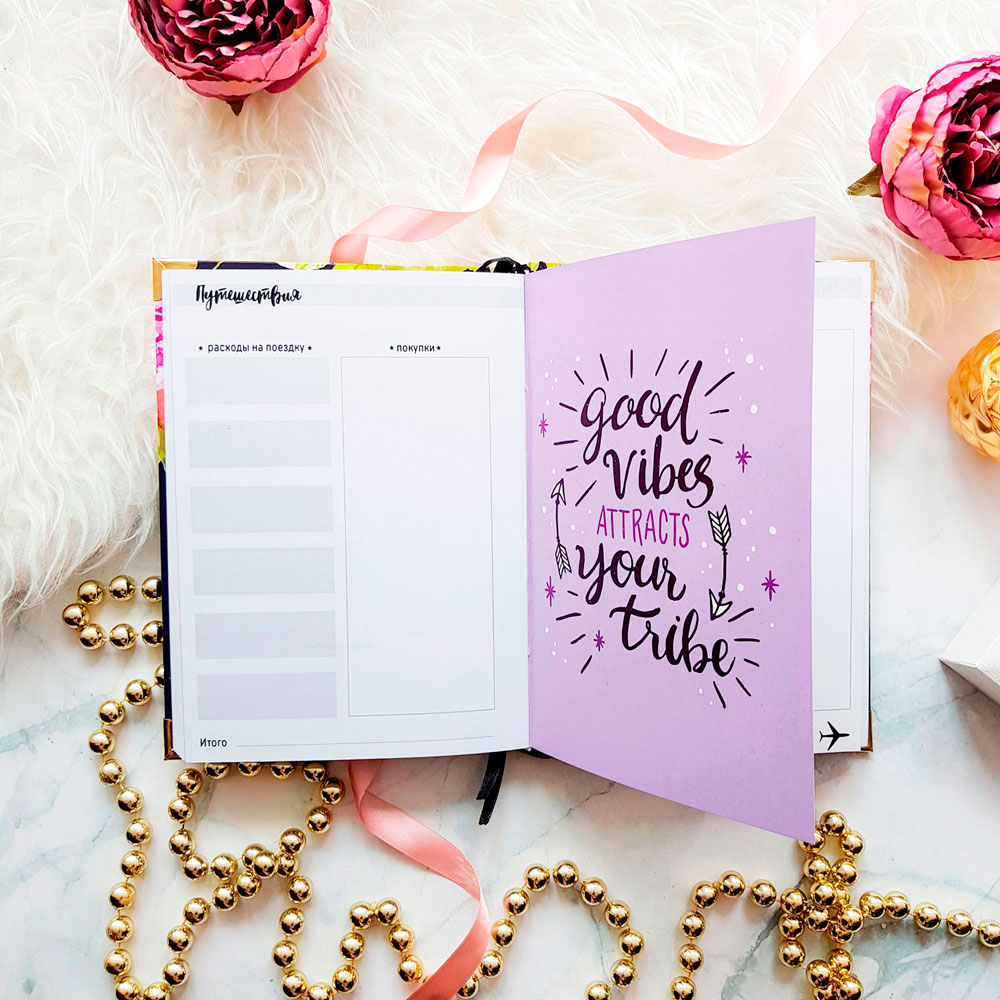 Путешествия
★ расходы на поездку ★
★ покупки ★
Итого
good
vibes
ATTRACTS
your
tribe